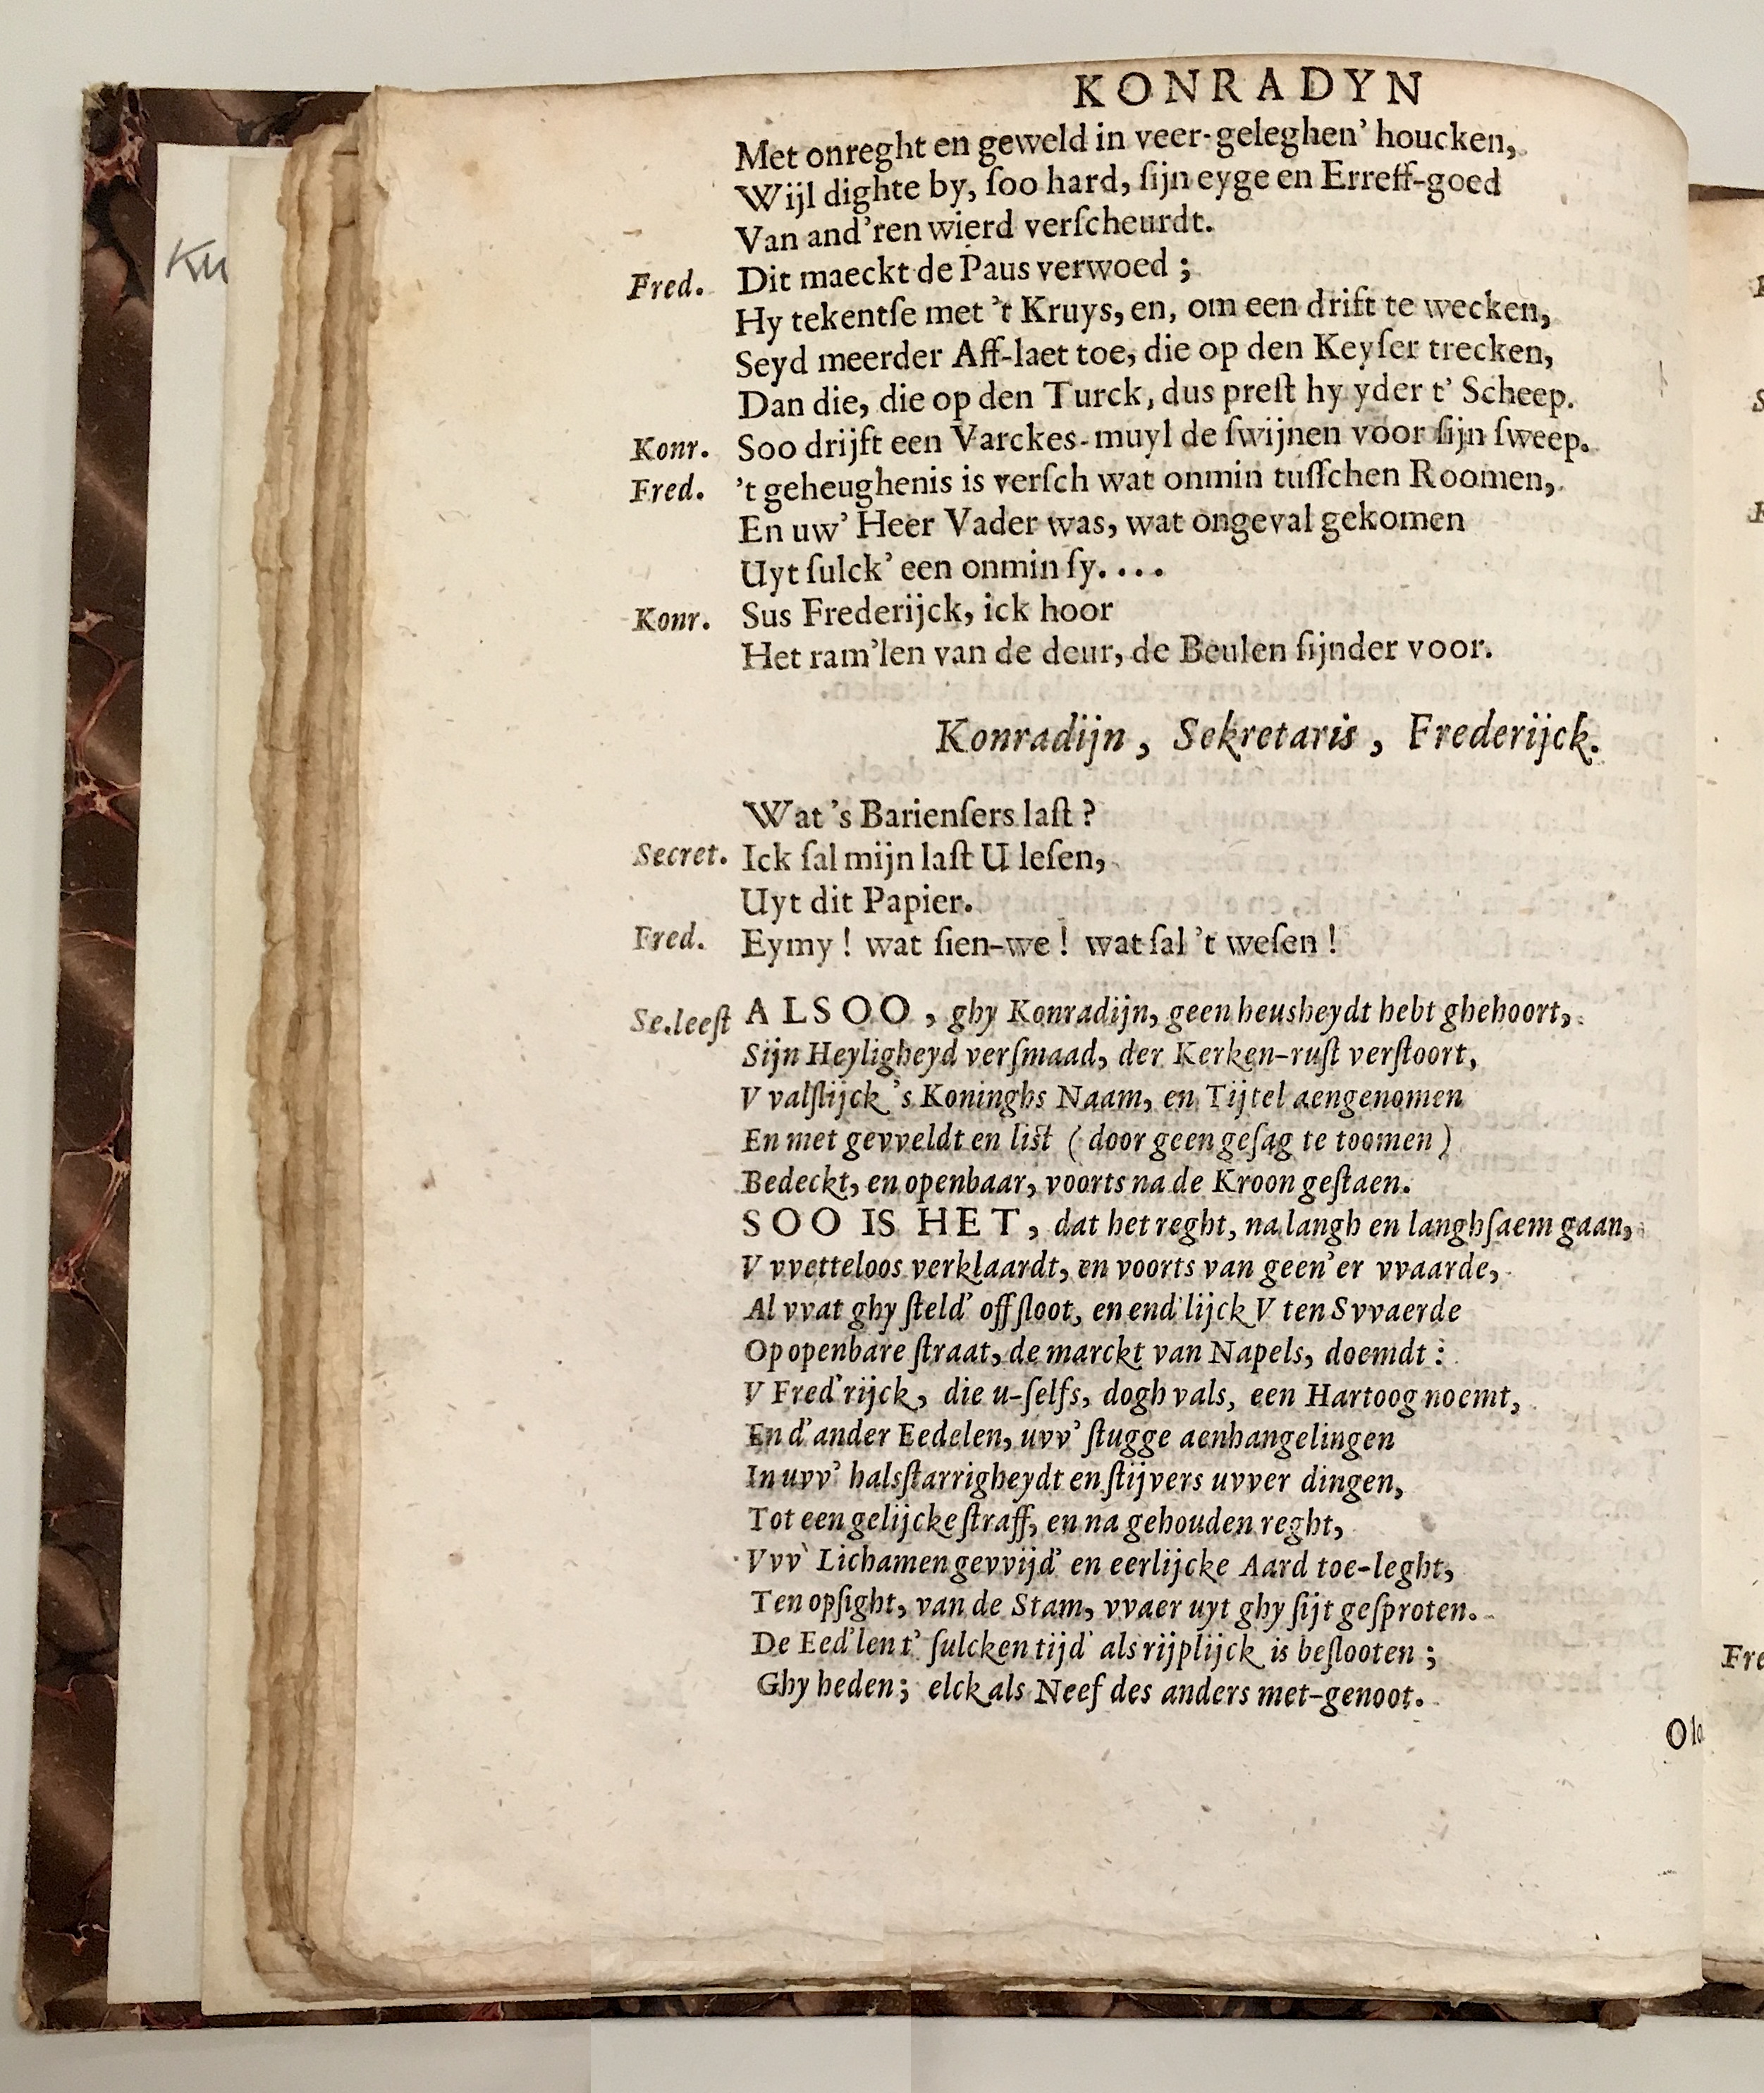 KONRADYN
Met onreght en geweld in veer-geleghen' houcken,
Wijl dighte by, ſoo hard, ſijn eyge en Erreff-goed
Van and'ren wierd verſcheurdt.
Fred. Dit maeckt de Paus verwoed ;
Hy tekentſe met 't Kruys, en, om een drift te wecken,
Seyd meerder Aff-laet toe, die op den Keyſer trecken,
Dan die, die op den Turck, dus preſt hy yder t' Scheep.
Konr. Soo drijft een Varckes-muyl de ſwijnen voor ſijn ſweep.
Fred. 't geheughenis is verſch wat onmin tuſſchen Roomen,
En uw' Heer Vader was, wat ongeval gekomen
Uyt ſulck' een onmin ſy. . . .
Konr. Sus Frederijck, ick hoor
Het ram'len van de deur, de Beulen ſijnder voor.
Konradijn, Sekretaris, Frederijck.
Wat 's Barienſers laſt ?
Secret. Ick ſal mijn laſt U leſen,
Uyt dit Papier.
Fred. Eymy ! wat ſien-we ! wat ſal 't weſen !
Se.leeſt ALSOO, ghy Konradijn, geen heusheydt hebt ghehoort,
Sijn Heyligheyd verſmaad, der Kerken-ruſt verſtoort,
V valſlijck 's Koninghs Naam, en Tijtel aengenomen
En met gevveldt en liſt ( door geen geſag te toomen )
Bedeckt, en openbaar, voorts na de Kroon geſtaen.
SOO IS HET, dat het reght, na langh en langhſaem gaan,
V vvetteloos verklaardt, en voorts van geen'er vvaarde,
Al vvat ghy ſteld' off ſloot, en end'lijck V ten Svvaerde
Op openbare ſtraat, de marckt van Napels, doemdt :
V Fred'rijck, die u-ſelfs, dogh vals, een Hartoog noemt,
En d'ander Eedelen, uvv' ſtugge aenhangelingen
In uvv' halsſtarrigheydt en ſtijvers uvver dingen,
Tot een gelijcke ſtraff, en na gehouden reght,
Vvv' Lichamen gevvijd' en eerlijcke Aard toe-leght,
Ten opſight, van de Stam, vvaer uyt ghy ſijt geſproten.
De Eed'len t' ſulcken tijd als rijplijck is beſlooten ;
Ghy heden ; elck als Neef des anders met-genoot.